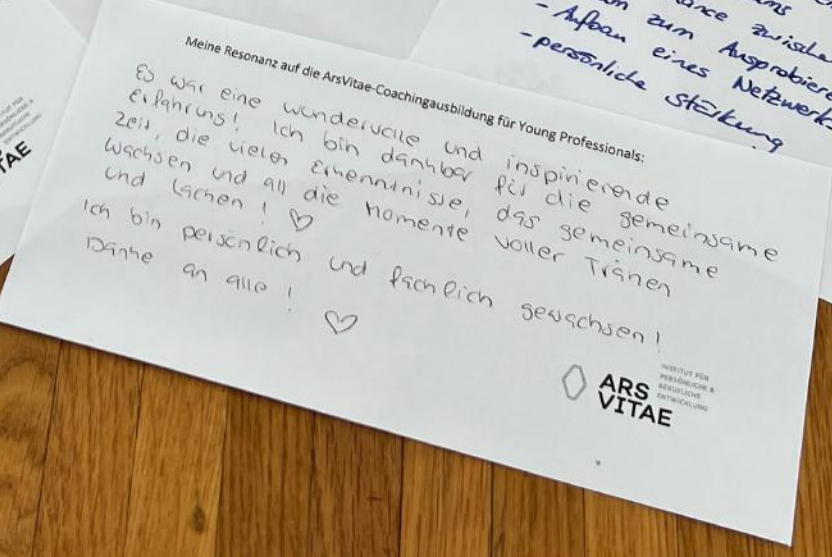 Meine Resonanz auf die ArsVitae-Coachingausbildung für Young Professionals:
Es war eine wundervolle und inspirierende
Erfahrung! Ich bin dankbar für die gemeinsame
Zeit, die vielen Erkenntnisse, das gemeinsame
Wachsen und all die Momente voller Tränen
und Lachen! ♡
Ich bin persönlich und fachlich gewachsen!
Danke an alle! ♡
ARS
VITAE
INSTITUT FÜR
PERSÖNLICHE &
BERUFLICHE
ENTWICKLUNG
zum Ausprobieren
- Aufbau eines Netzwerks
- persönliche Stärkung
TAE